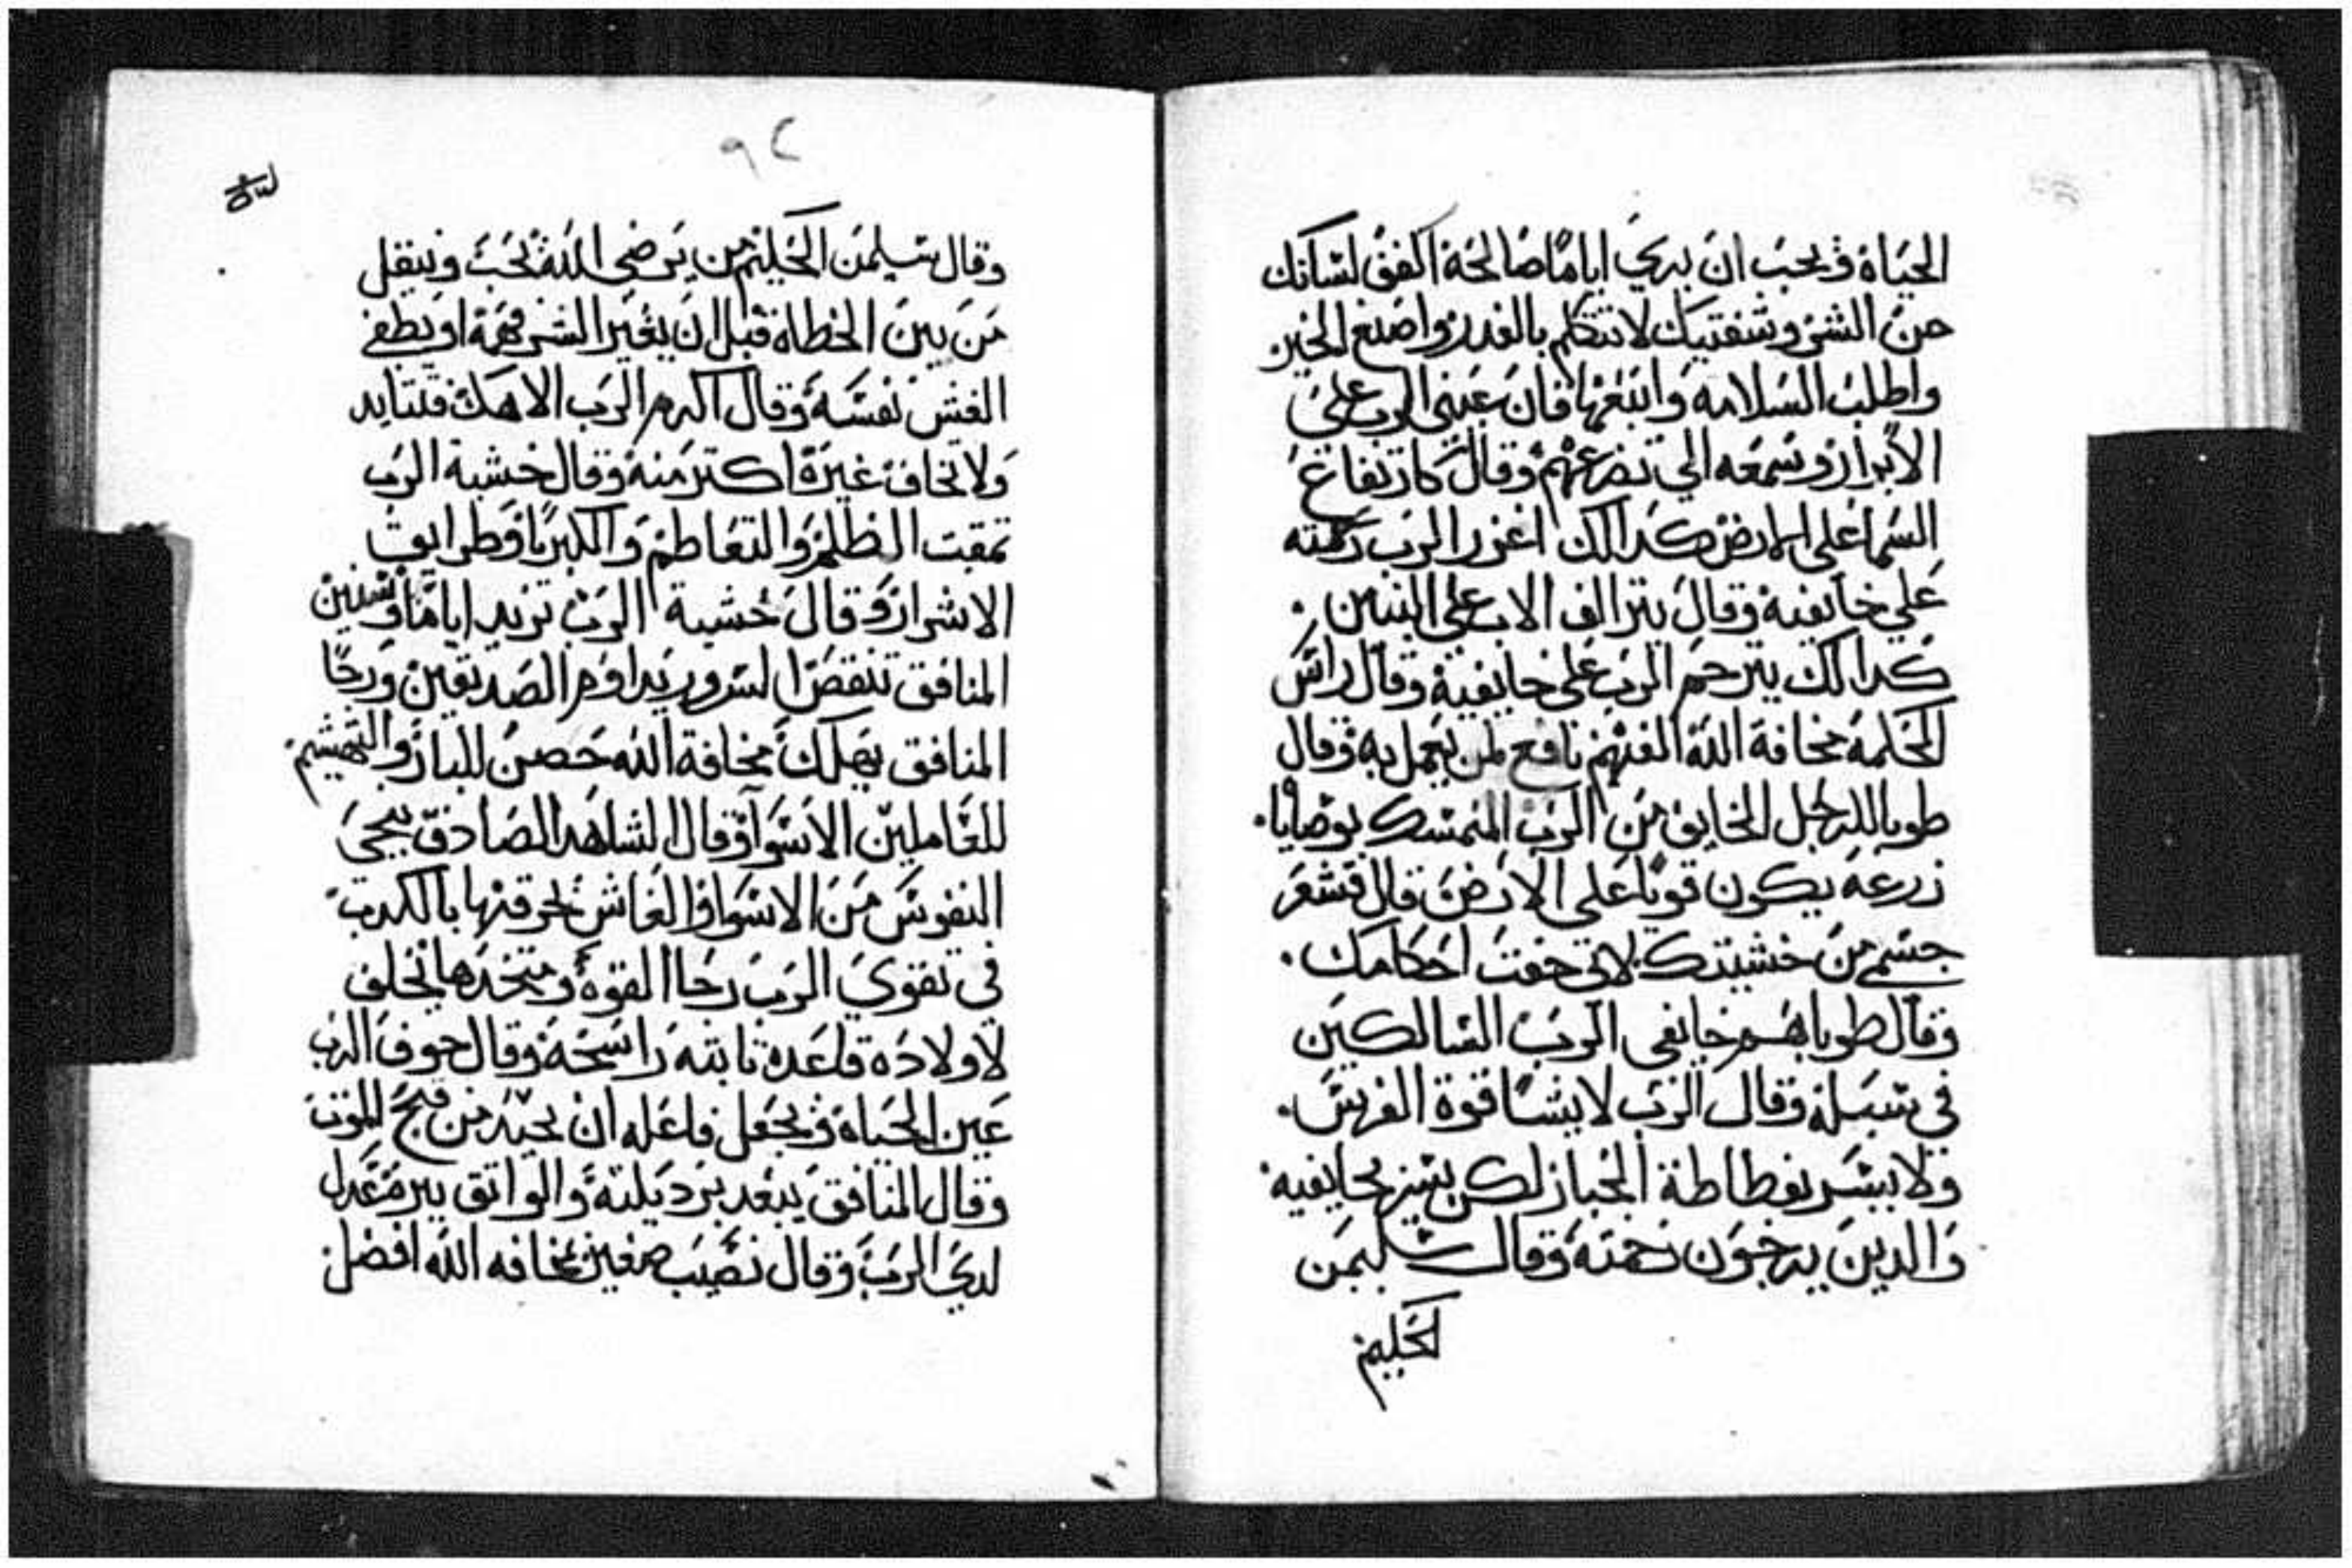 الحياة ويحب ان يري اياما صالحة اكفف لسانك
من الشر وشفتيك لا تتكلم بالغدر واصنع الخير
واطلب السلامه واتبعها فان عيني الرب علي
الابرار وسمعه الي تضرعهم وقال كارتفاع
السما علي الارض كدالك اغزر الرب رحمته
علي خايفية وقال يتراف الاب علي البنين
كدالك يترحم الرب علي خايفية وقال راس
الحكمة مخافة الله الفهم نافع لمن يعمل به وقال
طوبا للرجل الخايف من الرب المتمسك بوصايا
زرعه يكون قويا علي الارض قال قشعر
جسمي من خشيتك لاني خفت احكامك
وقال طوباهم خايفي الرب السالكين
في سبله وقال الرب لا يشا قوة الفرس
ولا يسر بفطاطة الجبار لكن يسر بخايفيه
والدين يرجون رحمته وقال سليمن
الحكيم
٩٢
وقال سليمن الحكيم من يرضي الله يحب وينقل
من بين الخطاة قبل ان يغير الشر فهمة او يطغي
الغش نفسه وقال اكرم الرب الاهك فتتايد
ولا تخاف غيرة اكتر منه وقال خشية الرب
تمقت الظلم والتعاطم والكبريا وطرايق
الاشرار وقال خشية الرب تزيد اياما وسنين
المنافق تنقص السرور يداوم الصديقين ورجا
المنافق يهلك مخافة الله حصن للبار والتهشيم
للعاملين الاسوا وقال الشاهد الصادق ينجي
النفوس من الاسوا والغاش يحرقها بالكدب
في تقوي الرب رجا القوة ومتخدها يخلف
لاولاده قاعدة تابته راسخة وقال خوف الرب
عين الحياة ويجعل فاعله ان يحيد من فخ الموت
وقال المنافق يبعد بردیلته والواتق ببره عدل
لدي الرب وقال نصيب صغير بمخافه الله افضل